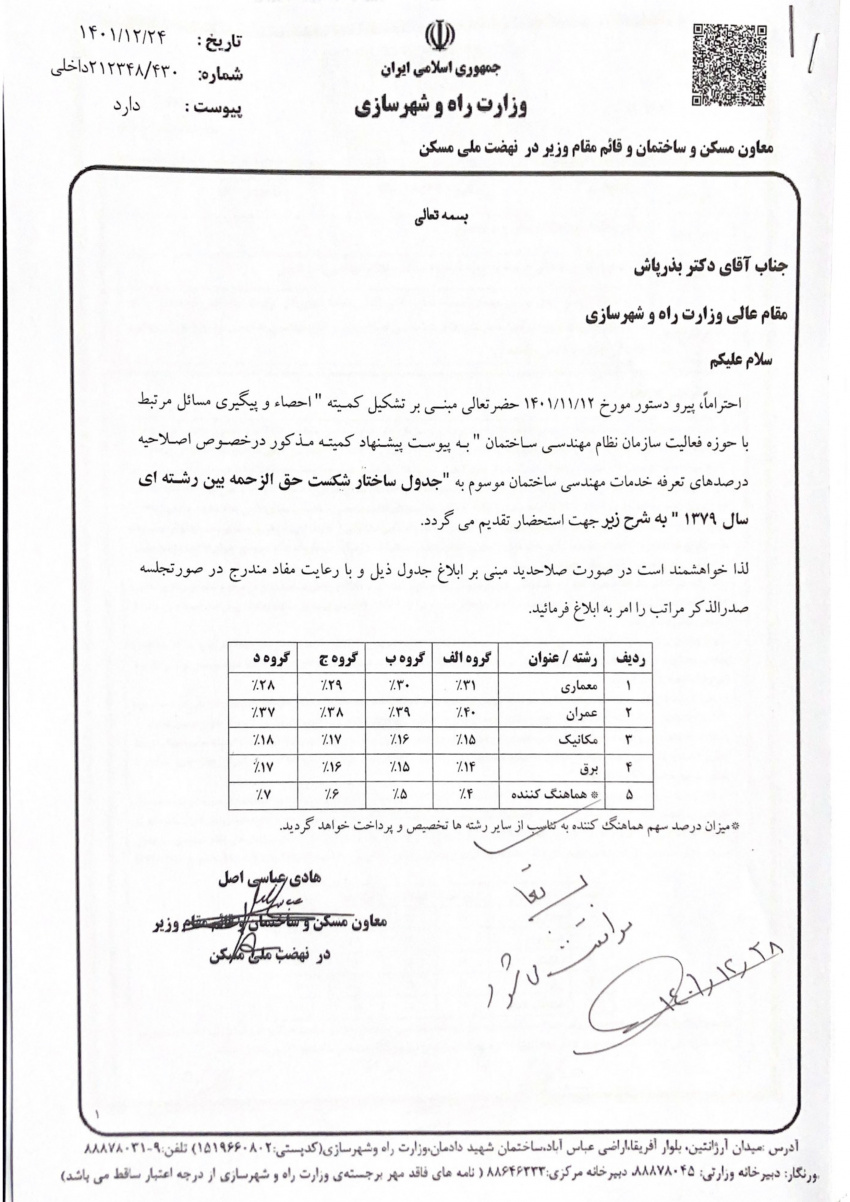 جمهوری اسلامی ایران
وزارت راه و شهرسازی
معاون مسکن و ساختمان و قائم مقام وزیر در نهضت ملی مسکن
تاریخ : ۱۴۰۱/۱۲/۲۴
شماره: ۲۱۲۳۴۸/۴۳۰داخلی
پیوست : دارد
بسمه تعالی
جناب آقای دکتر بذرپاش
مقام عالی وزارت راه و شهرسازی
سلام علیکم
احتراماً، پیرو دستور مورخ ۱۴۰۱/۱۱/۱۲ حضرتعالی مبنی بر تشکیل کمیته " احصاء و پیگیری مسائل مرتبط
با حوزه فعالیت سازمان نظام مهندسی ساختمان " به پیوست پیشنهاد کمیته مذکور درخصوص اصلاحیه
درصدهای تعرفه خدمات مهندسی ساختمان موسوم به "جدول ساختار شکست حق الزحمه بین رشته ای
سال ۱۳۷۹ " به شرح زیر جهت استحضار تقدیم می گردد.
لذا خواهشمند است در صورت صلاحدید مبنی بر ابلاغ جدول ذیل و با رعایت مفاد مندرج در صورتجلسه
صدرالذکر مراتب را امر به ابلاغ فرمائید.
ردیف رشته / عنوان گروه الف گروه ب گروه ج گروه د
۱ معماری ٪۳۱ ٪۳۰ ٪۲۹ ٪۲۸
۲ عمران ٪۴۰ ٪۳۹ ٪۳۸ ٪۳۷
۳ مکانیک ٪۱۵ ٪۱۶ ٪۱۷ ٪۱۸
۴ برق ٪۱۴ ٪۱۵ ٪۱۶ ٪۱۷
۵ * هماهنگ کننده ٪۴ ٪۵ ٪۶ ٪۷
*میزان درصد سهم هماهنگ کننده به تناسب از سایر رشته ها تخصیص و پرداخت خواهد گردید.
هادی عباسی اصل
معاون مسکن و ساختمان و قائم مقام وزیر
در نهضت ملی مسکن
موافقت می شود
۱۴۰۱/۱۲/۲۸
۱
آدرس :میدان آرژانتین، بلوار آفریقا،اراضی عباس آباد،ساختمان شهید دادمان،وزارت راه وشهرسازی(کدپستی:۱۵۱۹۶۶۰۸۰۲) تلفن:۹-۸۸۸۷۸۰۳۱
ورنگار: دبیرخانه وزارتی: ۸۸۸۷۸۰۴۵، دبیرخانه مرکزی:۸۸۶۴۶۲۳۳ ( نامه های فاقد مهر برجسته‌ی وزارت راه و شهرسازی از درجه اعتبار ساقط می باشد)